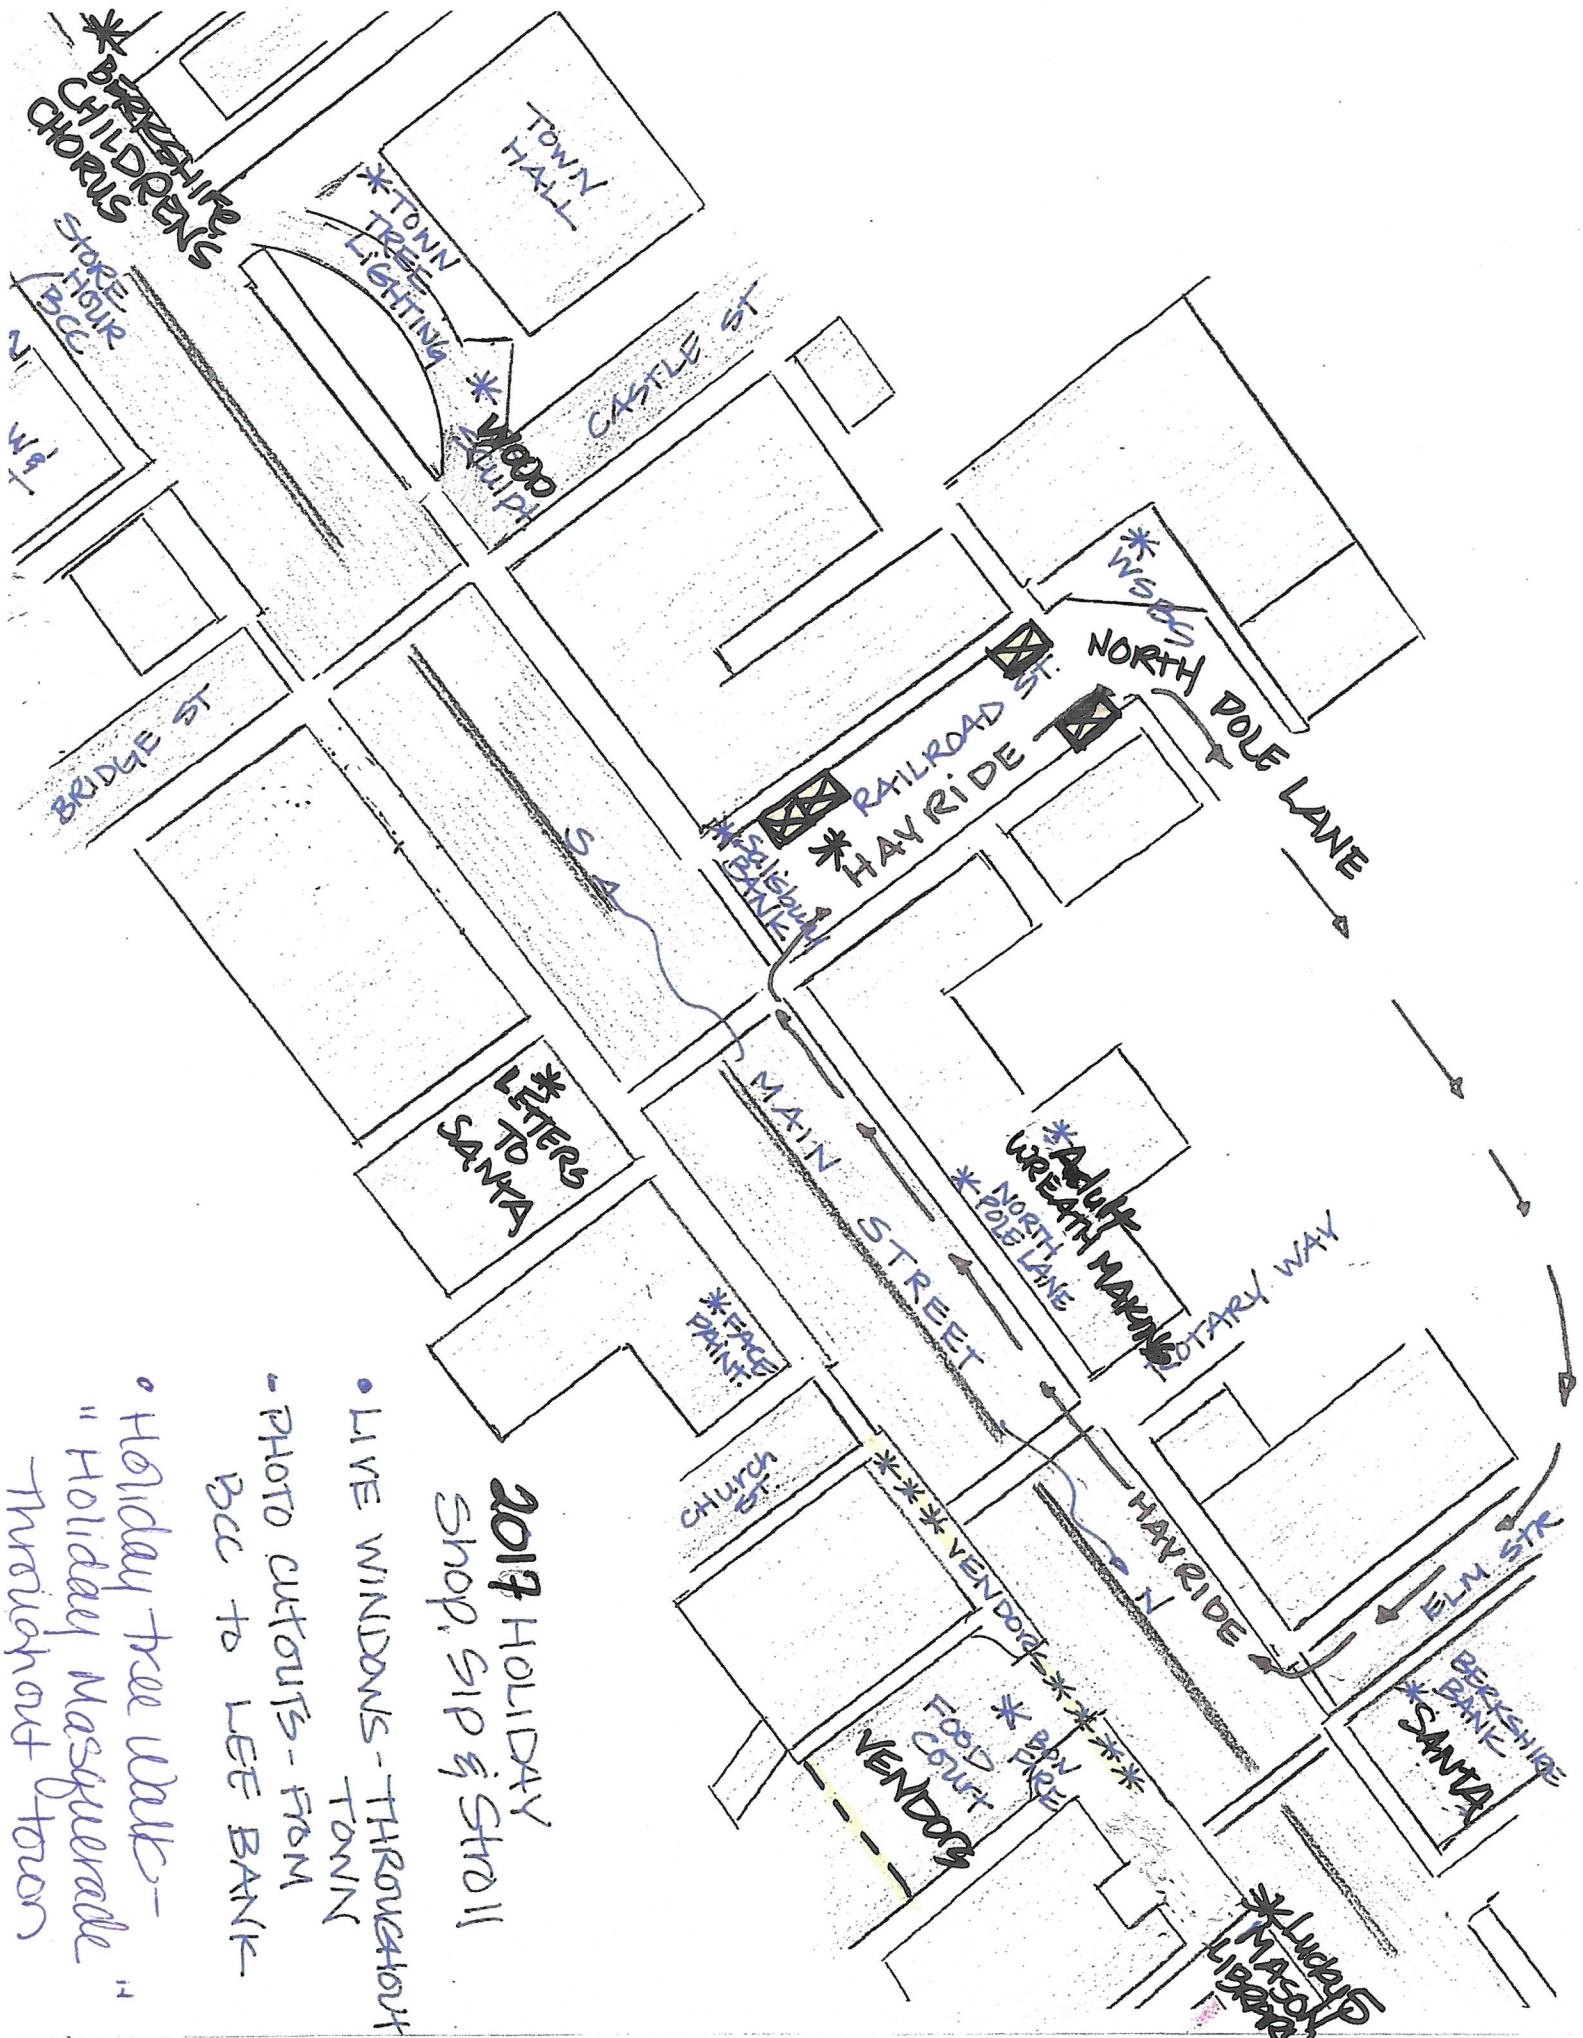 * BERKSHIRE
CHILDRENS
CHORUS
STORE
HOUR
BCC
TOWN
HALL
* TOWN
TREE
LIGHTING
* WOOD
SCULPT
CASTLE ST
BRIDGE ST
* WSBS
NORTH POLE LANE
RAILROAD ST.
* HAYRIDE
* Salisbury
BANK
S
MAIN STREET
N
* LETTERS
TO
SANTA
* FACE
PAINT.
* Adult
WREATH MAKING
* NORTH
POLE LANE
ROTARY WAY
CHURCH
ST.
**** VENDORS ****
HAYRIDE
ELM STR
BERKSHIRE
BANK
* SANTA
* BON
FIRE
FOOD
COURT
VENDORS
* Lucky 5
* MASON
LIBRARY
2017 HOLIDAY
Shop, Sip & Stroll
• LIVE WINDOWS - THROUGHOUT
TOWN
- PHOTO CUTOUTS - FROM
BCC to LEE BANK
• Holiday tree walk -
"Holiday Masquerade"
Throughout town